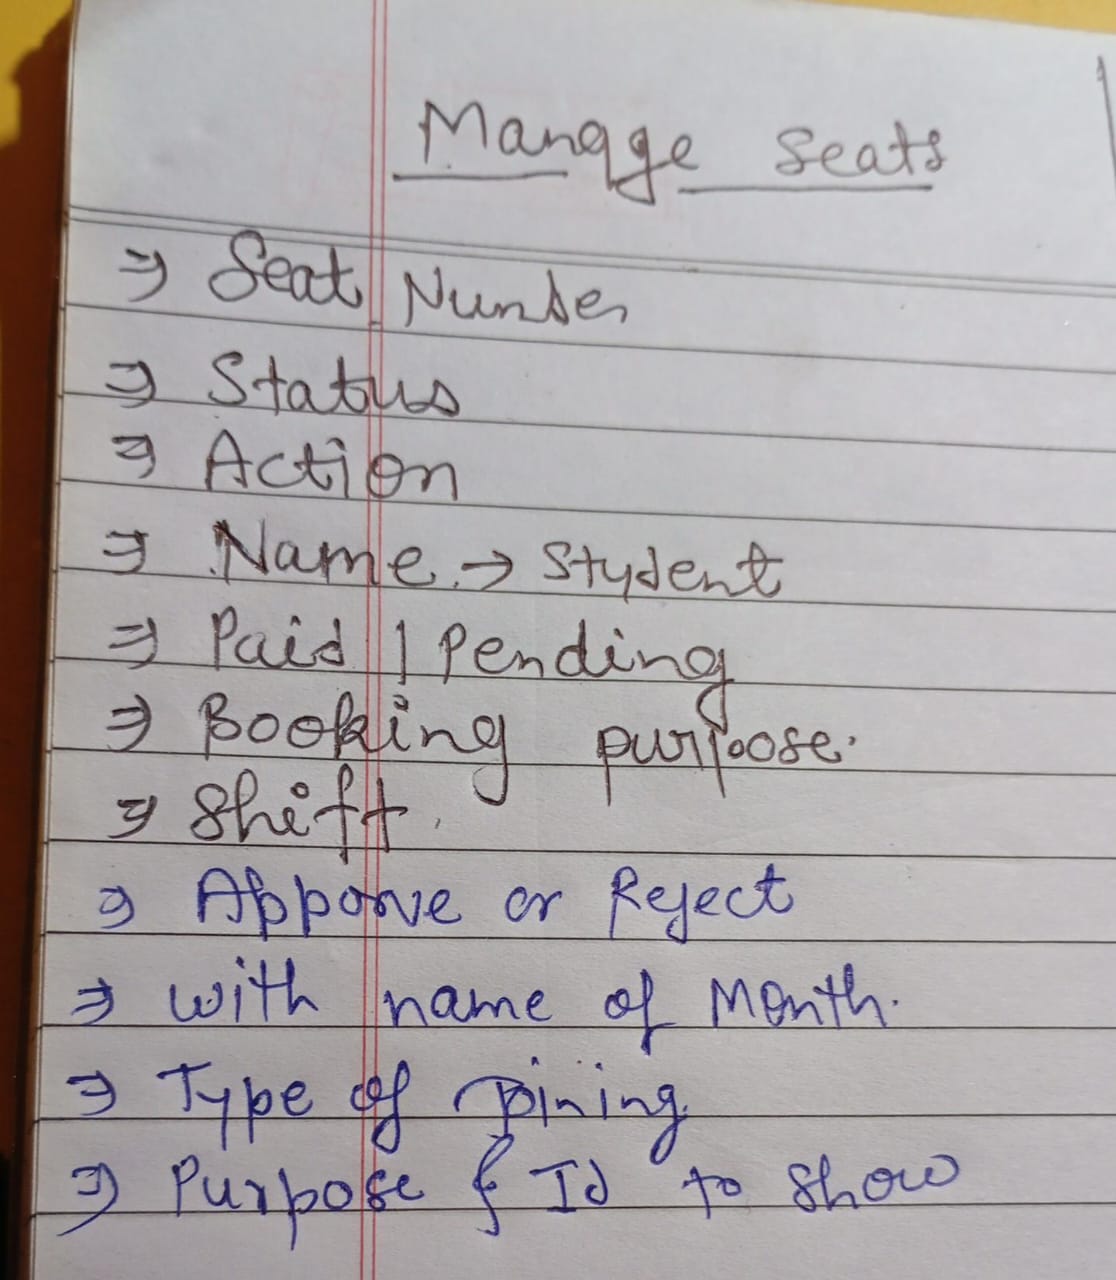 Manage Seats
⇒ Seat Number
⇒ Status
⇒ Action
⇒ Name → Student
⇒ Paid / Pending
⇒ Booking purpose.
⇒ Shift
⇒ Apporve or Reject
⇒ with name of Month.
⇒ Type of Joining
⇒ Purpose & Id to show